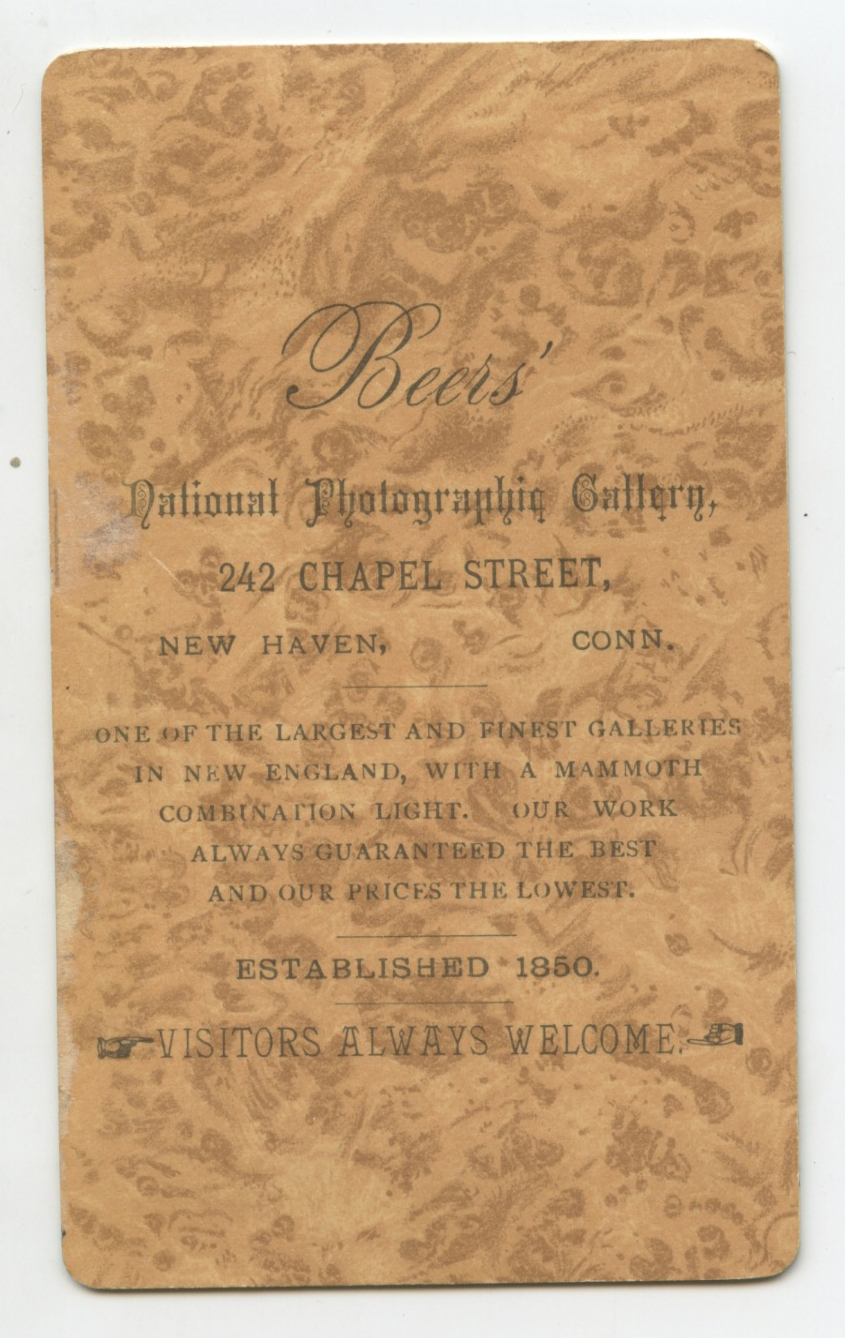 Beers'
National Photographic Gallery,
242 CHAPEL STREET,
NEW HAVEN, CONN.
ONE OF THE LARGEST AND FINEST GALLERIES
IN NEW ENGLAND, WITH A MAMMOTH
COMBINATION LIGHT. OUR WORK
ALWAYS GUARANTEED THE BEST
AND OUR PRICES THE LOWEST.
ESTABLISHED 1850.
VISITORS ALWAYS WELCOME.